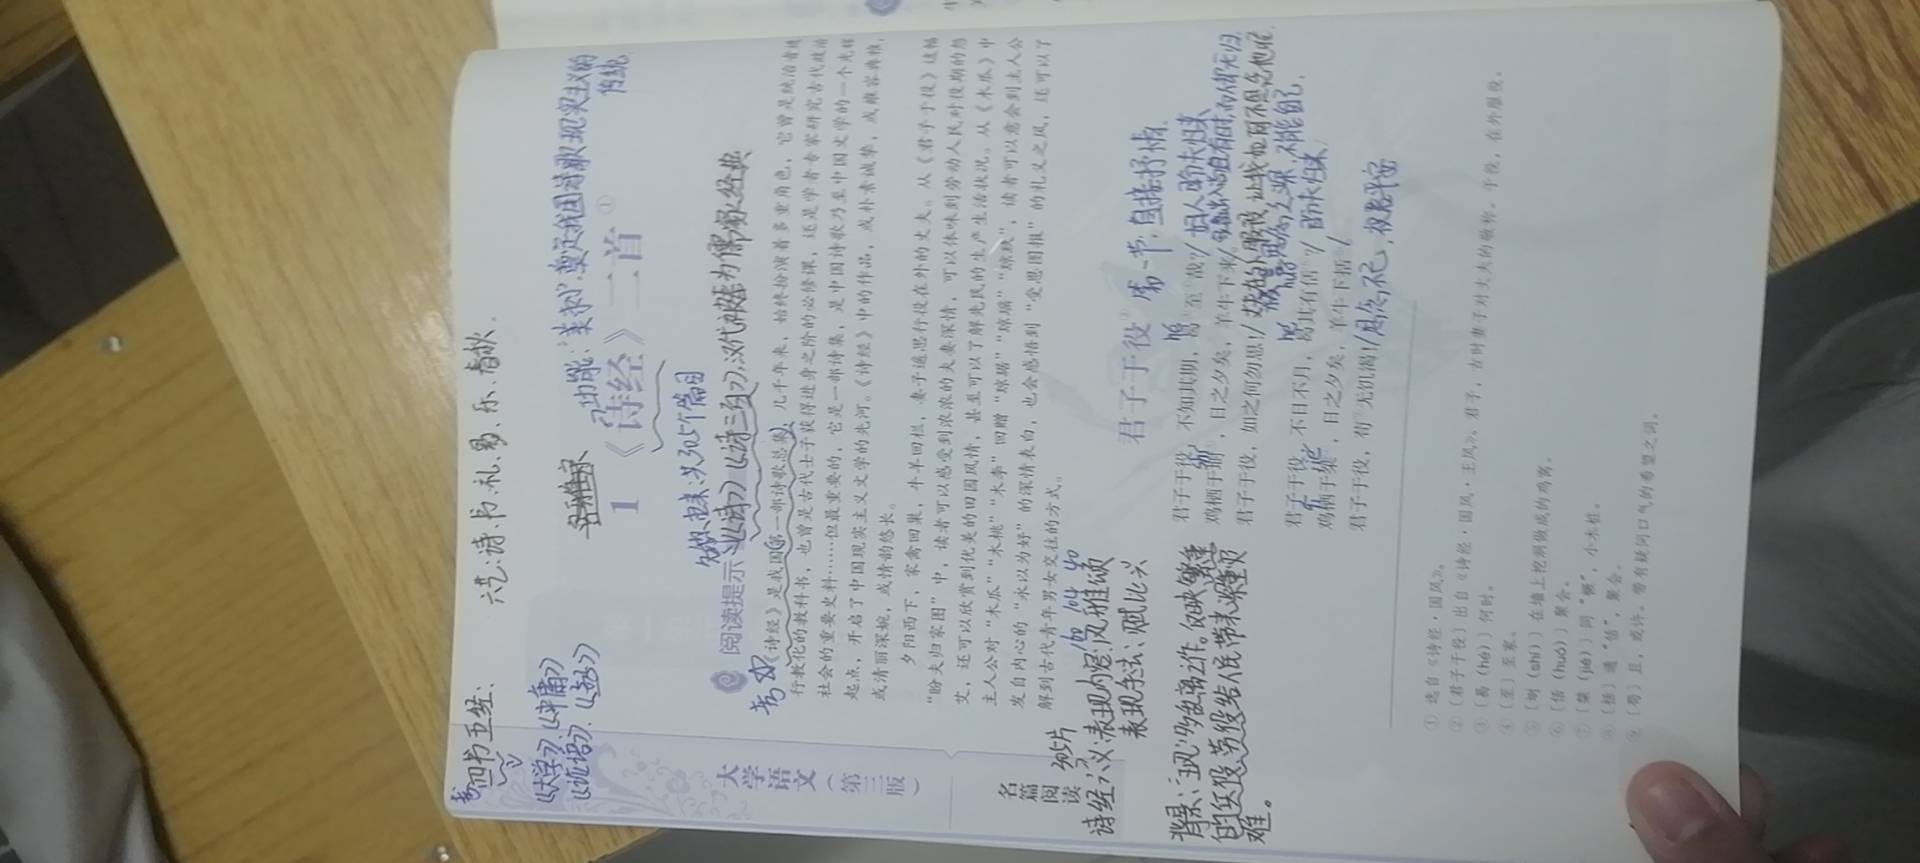 考四书五经：
六艺：诗、书、礼、易、乐、春秋。
《大学》、《中庸》
《论语》、《孟子》
大学语文
（第三版）
名篇阅读
1
《诗经》二首①
功能："美刺"，奠定我国诗歌现实主义的
传统
阅读提示
《诗》《诗三百》，汉代被尊为儒家经典
共305个篇目
《诗经》是我国第一部诗歌总集，几千年来，始终扮演着多重角色，它曾是统治者进
行教化的教科书，也曾是古代士子获得进身之阶的必修课，还是学者专家研究古代政治
社会的重要史料……但最重要的，它是一部诗集，是中国诗歌乃至中国文学的一个光辉
起点，开启了中国现实主义文学的先河。《诗经》中的作品，或朴素诚挚，或雍容典雅，
或清丽深婉，或情韵悠长。
夕阳西下，家禽回巢，牛羊回栏，妻子遥思行役在外的丈夫。从《君子于役》这幅
"盼夫归家图"中，读者可以感受到浓浓的夫妻深情，可以体味到劳动人民对役期的怨
艾，还可以欣赏到优美的田园风情，甚至可以了解先民的生产生活状况。从《木瓜》中
主人公对"木瓜""木桃""木李"回赠"琼琚""琼瑶""琼玖"，读者可以意会到主人公
发自内心的"永以为好"的深情表白，也会感悟到"受恩图报"的礼义之风，还可以了
解到古代青年男女交往的方式。
305篇
160 104 40
诗经"六义：表现内容：风雅颂
表现手法：赋比兴
君子于役②
第一节，直接抒情。
君子于役，不知其期，曷③至④哉？
鸡栖于埘⑤，日之夕矣，羊牛下来。
君子于役，如之何勿思！
君子于役，不日不月，曷其有佸⑥？
鸡栖于桀⑦，日之夕矣，羊牛下括⑧。
君子于役，苟⑨无饥渴！
妇人盼夫归来
盼夫归来
思念不已，祝愿平安
难。
① 选自《诗经·国风》。
② 〔君子于役〕出自《诗经·国风·王风》。君子，古时妻子对丈夫的敬称。于役，在外服役。
③ 〔曷（hé）〕何时。
④ 〔至〕至家。
⑤ 〔埘（shí）〕在墙上挖洞做成的鸡窝。
⑥ 〔佸（huó）〕聚会。
⑦ 〔桀（jié）〕同"橛"，小木桩。
⑧ 〔括〕通"佸"，聚会。
⑨ 〔苟〕且，或许。带有疑问口气的希望之词。